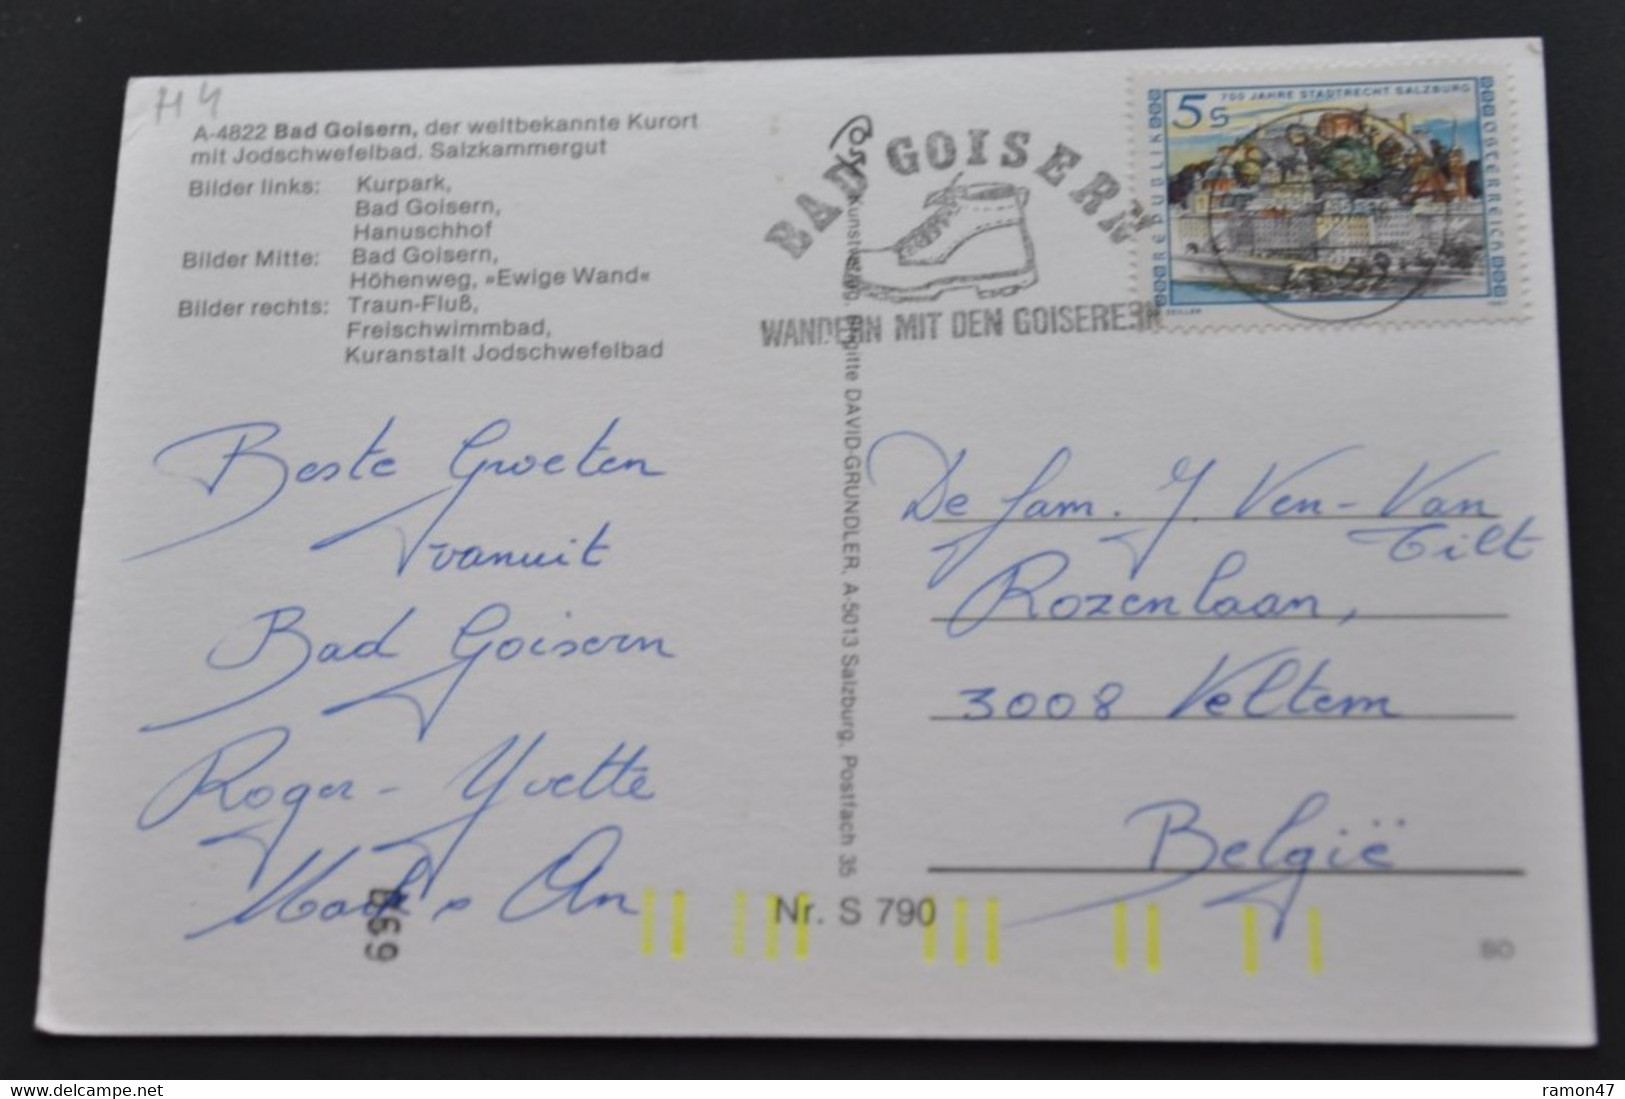 H 4
A-4822 Bad Goisern, der weltbekannte Kurort
mit Jodschwefelbad. Salzkammergut
Bilder links: Kurpark,
Bad Goisern,
Hanuschhof
Bilder Mitte: Bad Goisern,
Höhenweg, »Ewige Wand«
Bilder rechts: Traun-Fluß,
Freischwimmbad,
Kuranstalt Jodschwefelbad
BAD GOISERN
WANDERN MIT DEN GOISERERN
5 S
700 JAHRE STADTRECHT SALZBURG
REPUBLIK
OSTERREICH
Kunstverlag, Brigitte DAVID-GRUNDLER, A-5013 Salzburg, Postfach 35
Beste Groeten
vanuit
Bad Goisern
Roger - Yvette
An
De fam. J. Ven-Van
Tilt
Rozenlaan,
3008 Veltem
België
699
Nr. S 790
BO
www.delcampe.net
ramon47